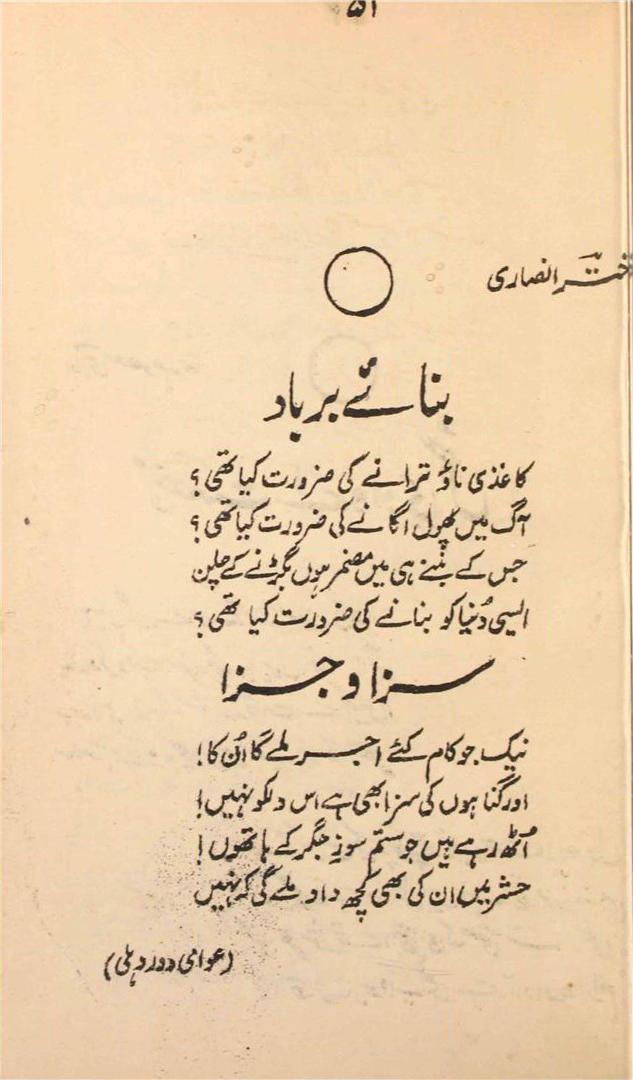 ۵۱
اختر انصاری
بنائے برباد
کاغذی ناؤ ترانے کی ضرورت کیا تھی؟
آگ میں پھول اگانے کی ضرورت کیا تھی؟
جس کے بننے ہی میں مضمر ہوں بگڑنے کے چلن
ایسی دُنیا کو بنانے کی ضرورت کیا تھی؟
سزا و جزا
نیک جو کام کئے اجر ملے گا اُن کا!
اور گناہوں کی سزا بھی ہے اس دیکو نہیں!
اُٹھ رہے ہیں جو ستم سوزِ جگر کے ہاتھوں!
حشر میں ان کی بھی کچھ داد ملے گی کہ نہیں
(عوامی دور دہلی)